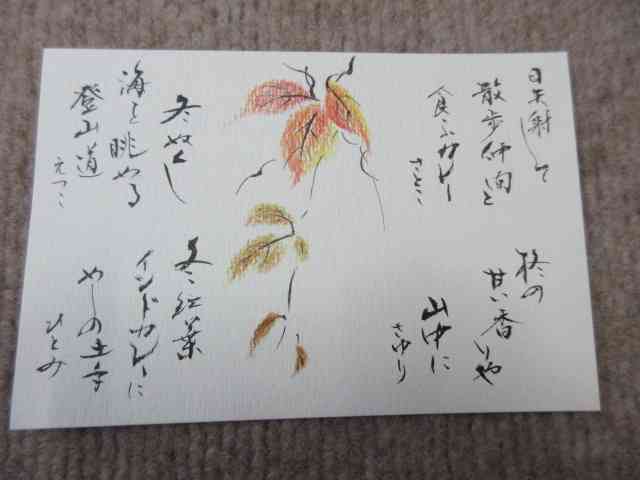 日矢射して
散歩仲間と
食ふカレー
さとこ
柊の
甘い香りや
山中に
さゆり
冬ぬくし
海を眺める
登山道
えつこ
冬紅葉
インドカレーに
やしの土手
ひとみ